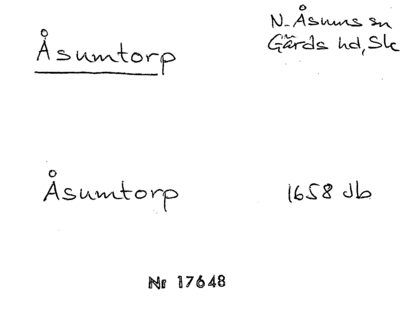 Åsumtorp
N. Åsums sn
Gärds hd, Sk
Åsumtorp
1658 Jb
Nr 17648